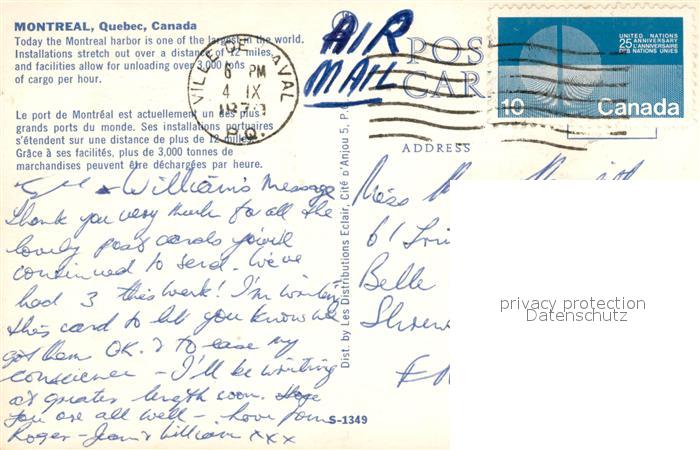 MONTREAL, Quebec, Canada
Today the Montreal harbor is one of the largest in the world.
Installations stretch out over a distance of 12 miles,
and facilities allow for unloading over 3,000 tons
of cargo per hour.
Le port de Montréal est actuellement un des plus
grands ports du monde. Ses installations portuaires
s'étendent sur une distance de plus de 12 milles.
Grâce à ses facilités, plus de 3,000 tonnes de
marchandises peuvent être déchargées par heure.
William's Message
Thank you very much for all the
lovely post cards you've
continued to send. We've
had 3 this week! I'm writing
this card to let you know we
got them OK. & to ease my
conscience - I'll be writing
at greater length soon. Hope
you are all well - love from
Roger - Jean & William xxx
S-1349
Dist. by Les Distributions Eclair, Cité d'Anjou 5, P.
VILLE DE LAVAL
6 PM
4 IX
1970
P.Q.
AIR
MAIL
POS
CAR
UNITED NATIONS
25th ANNIVERSARY
L'ANNIVERSAIRE
DES NATIONS UNIES
10 Canada
ADDRESS
Miss
61
Belle
privacy protection
Datenschutz